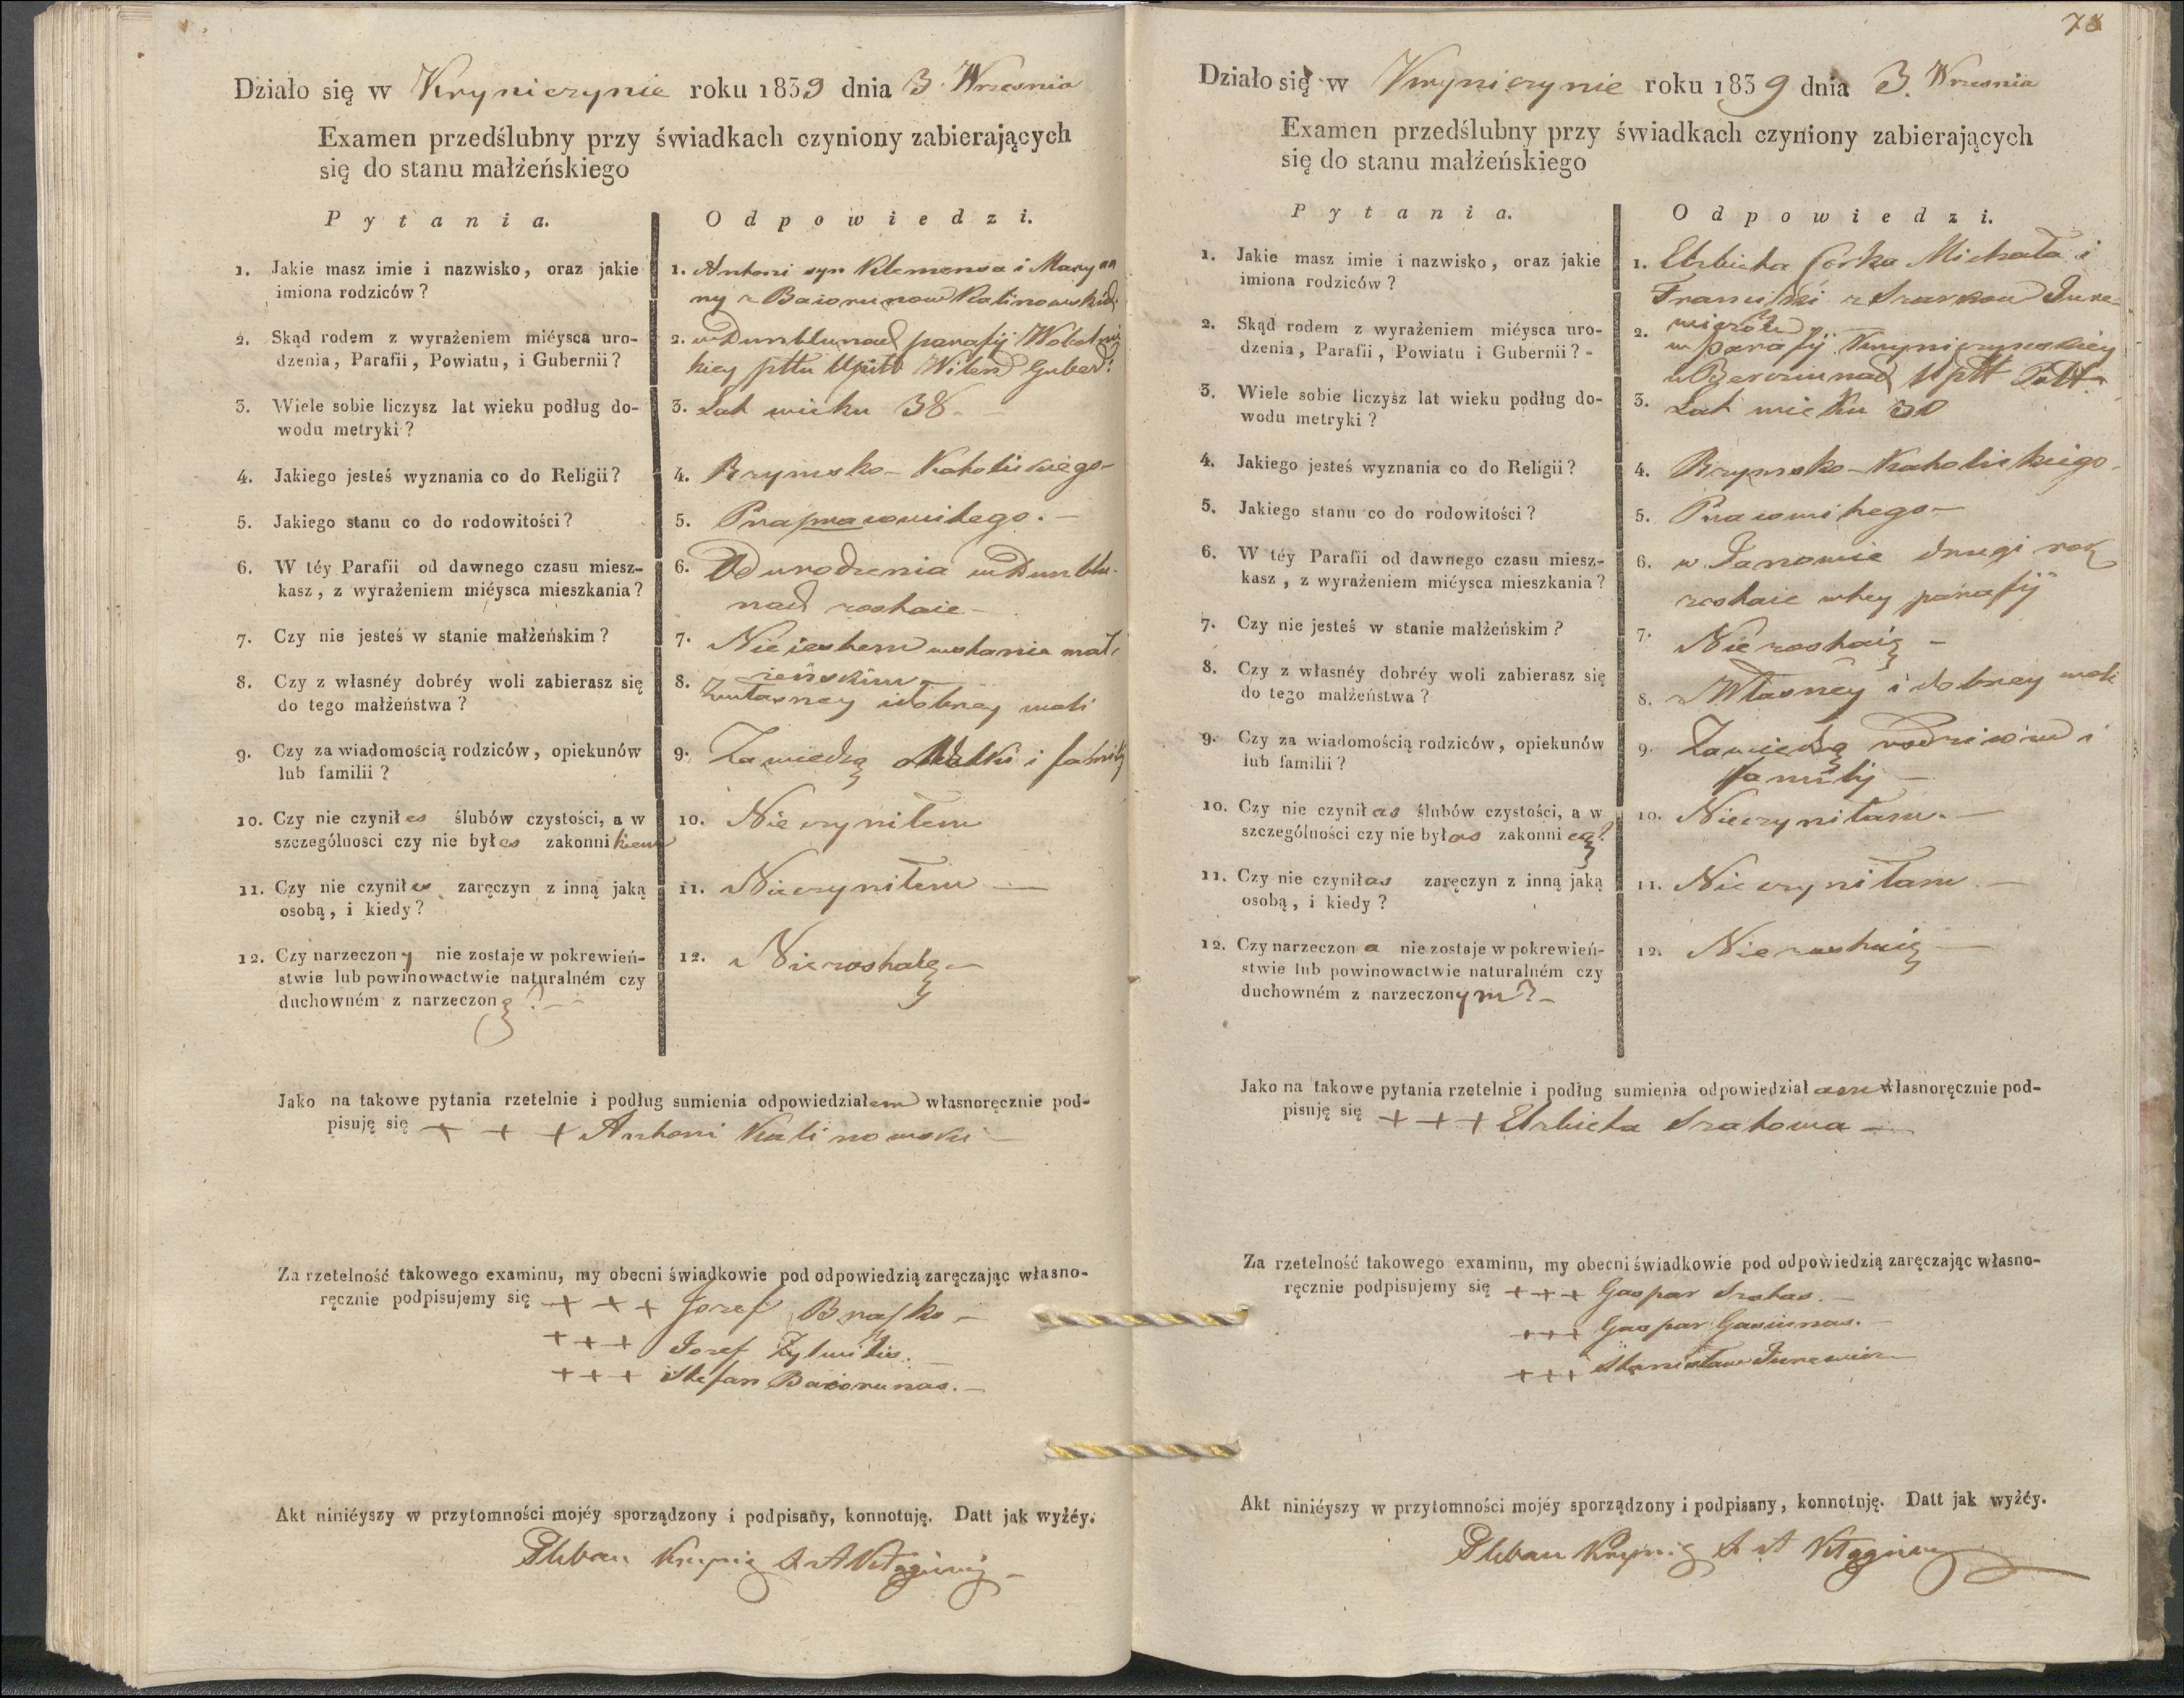 Działo się w Kryniczynie roku 1839 dnia 3. Wrzesnia
Examen przedślubny przy świadkach czyniony zabierających
się do stanu małżeńskiego
Pytania. Odpowiedzi.
1. Jakie masz imie i nazwisko, oraz jakie
imiona rodziców?
1. Antoni syn Klemensa i Maryan
ny z Baiorunow Kalinowskich
2. Skąd rodem z wyrażeniem miéysca uro-
dzenia, Parafii, Powiatu, i Gubernii?
2. w Dunblunach parafij
kiey pttu Upit Wilen Guber
3. Wiele sobie liczysz lat wieku podług do-
wodu metryki?
3. Lat wieku 38.
4. Jakiego jesteś wyznania co do Religii?
4. Rzymsko-Katolickiego-
5. Jakiego stanu co do rodowitości?
5. Prapracowitego.-
6. W téy Parafii od dawnego czasu miesz-
kasz, z wyrażeniem miéysca mieszkania?
6. Od urodzenia w Dunblu-
nach zostaie-
7. Czy nie jesteś w stanie małżeńskim?
7. Nie iestem w stanie mał-
żeńskim
8. Czy z własnéy dobréy woli zabierasz się
do tego małżeństwa?
8. Z własney i dobrey woli
9. Czy za wiadomością rodziców, opiekunów
lub familii?
9. Za wiedzą Matki i familij
10. Czy nie czynił es ślubów czystości, a w
szczególności czy nie był es zakonnikiem
10. Nie czyniłem
11. Czy nie czynił es zaręczyn z inną jaką
osobą, i kiedy?
11. Nie czyniłem —
12. Czy narzeczony nie zostaje w pokrewień-
stwie lub powinowactwie naturalném czy
duchowném z narzeczoną?-
12. Nie zostaię-
Jako na takowe pytania rzetelnie i podług sumienia odpowiedziałem własnoręcznie pod-
pisuję się + + + Antoni Kalinowski-
Za rzetelność takowego examinu, my obecni świadkowie pod odpowiedzią zaręczając własno-
ręcznie podpisujemy się + + + Jozef Brazko-
+ + + Jozef
+ + + Stefan Baiorunas.-
Akt niniéyszy w przytomności mojéy sporządzony i podpisany, konnotuję. Datt jak wyżéy.
Pleban Krynic
78
Działo się w Kryniczynie roku 1839 dnia 3. Wrzesnia
Examen przedślubny przy świadkach czyniony zabierających
się do stanu małżeńskiego
Pytania. Odpowiedzi.
1. Jakie masz imie i nazwisko, oraz jakie
imiona rodziców?
1. Elzbieta Córka Michała i
Franciszki z Jure-
wiczów
2. Skąd rodem z wyrażeniem miéysca uro-
dzenia, Parafii, Powiatu i Gubernii?-
2. w parafij Kryniczynskiey
3. Wiele sobie liczysz lat wieku podług do-
wodu metryki?
3. Lat wieku 30
4. Jakiego jesteś wyznania co do Religii?
4. Rzymsko-Katolickiego-
5. Jakiego stanu co do rodowitości?
5. Pracowitego-
6. W téy Parafii od dawnego czasu miesz-
kasz, z wyrażeniem miéysca mieszkania?
6. w Janowie drugi rok
zostaie w tey parafij
7. Czy nie jesteś w stanie małżeńskim?
7. Nie zostaię -
8. Czy z własnéy dobréy woli zabierasz się
do tego małżeństwa?
8. z Własney i dobrey woli
9. Czy za wiadomością rodziców, opiekunów
lub familii?
9. Za wiedzą rodziców i
familij -
10. Czy nie czynił as ślubów czystości, a w
szczególności czy nie był as zakonnicą?
10. Nie czyniłam.-
11. Czy nie czynił as zaręczyn z inną jaką
osobą, i kiedy?
11. Nie czyniłam.-
12. Czy narzeczona nie zostaje w pokrewień-
stwie lub powinowactwie naturalném czy
duchowném z narzeczonym?-
12. Nie zostaię -
Jako na takowe pytania rzetelnie i podług sumienia odpowiedziałam własnoręcznie pod-
pisuję się + + + Elzbieta Szatowa-
Za rzetelność takowego examinu, my obecni świadkowie pod odpowiedzią zaręczając własno-
ręcznie podpisujemy się + + + Gaspar Szatas.-
+++ Gaspar Gasiunas.-
+++ Stanisław Jurewicz
Akt niniéyszy w przytomności mojéy sporządzony i podpisany, konnotuję. Datt jak wyżéy.
Pleban Krynic